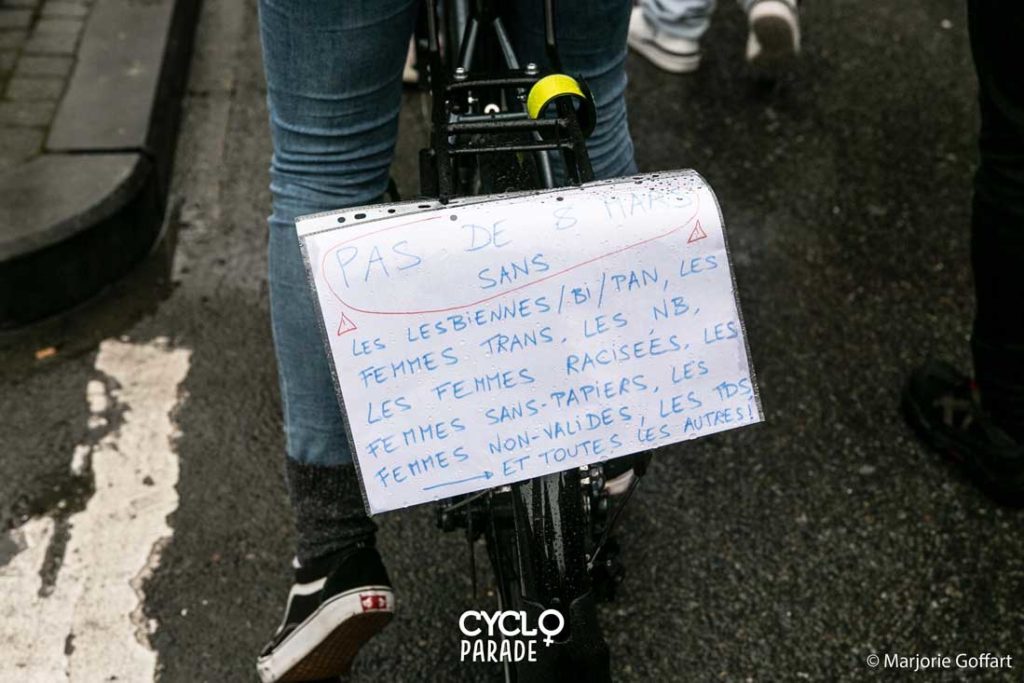 PAS DE 8 MARS
SANS
LES LESBIENNES/BI/PAN, LES
FEMMES TRANS, LES NB,
LES FEMMES RACISEÉS, LES
FEMMES SANS-PAPIERS, LES
FEMMES NON-VALIDES, LES TDS,
→ ET TOUTES LES AUTRES!
CYCLO
PARADE
© Marjorie Goffart